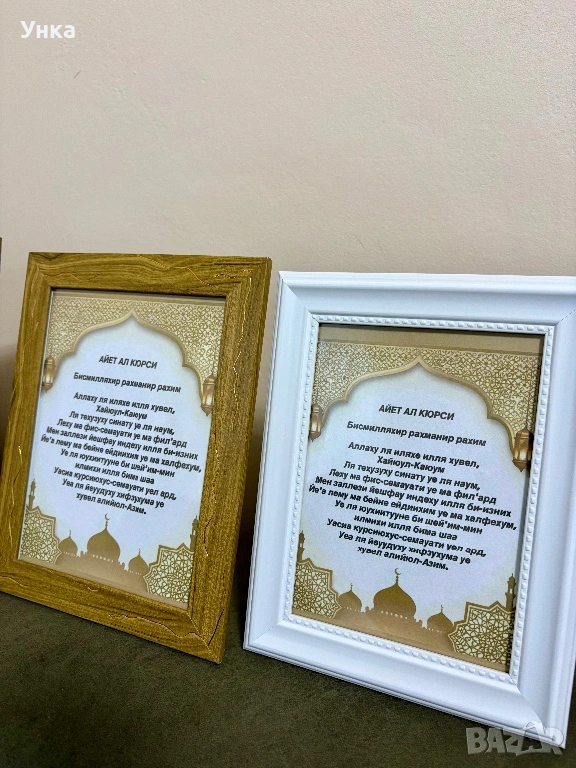 Унка
АЙЕТ АЛ КЮРСИ
Бисмилляхир рахманир рахим
Аллаху ля иляхе илля хувел,
Хайюул-Каюум
Ля техузуху синату уе ля наум,
Леху ма фис-семауати уе ма фил'ард
Мен заллези йешфау индеху илля би-изних
Йе'а лему ма бейне ейдиихим уе ма халфехум,
Уе ля юухиитууне би шей'им-мин
илмихи илля бима шаа
Уасиа курсиюхус-семауати уел ард,
Уеа ля йеуудуху хифзухума уе
хувел алийюл-Азим.
АЙЕТ АЛ КЮРСИ
Бисмилляхир рахманир рахим
Аллаху ля иляхе илля хувел,
Хайюул-Каюум
Ля техузуху синату уе ля наум,
Леху ма фис-семауати уе ма фил'ард
Мен заллези йешфау индеху илля би-изних
Йе'а лему ма бейне ейдиихим уе ма халфехум,
Уе ля юухиитууне би шей'им-мин
илмихи илля бима шаа
Уасиа курсиюхус-семауати уел ард,
Уеа ля йеуудуху хифзухума уе
хувел алийюл-Азим.
BAZAR